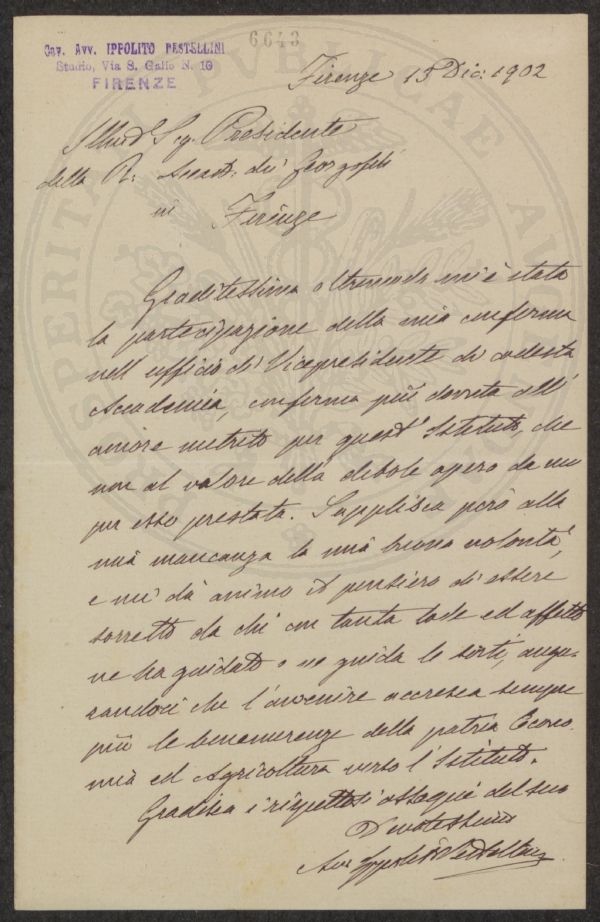 6643
Cav. Avv. IPPOLITO PESTELLINI
Studio, Via S. Gallo N. 10
FIRENZE
Firenze 15 Dic: 1902
Sig. Presidente
della R: Accad: dei Georgofili
in Firenze
Graditissima oltremodo mi è stata
la partecipazione della mia conferma
nell'ufficio di Vicepresidente di codesta
Accademia, conferma più dovuta all'
amore nutrito per quest'Istituto, che
non al valore della debole opera da me
per esso prestata. Supplisca però alla
mia mancanza la mia buona volontà,
e mi dà animo il pensiero di essere
sorretto da chi con tanta lode ed affetto
ne ha guidato e ne guida le sorti, augu-
randoci che l'avvenire accresca sempre
più le benemerenze della patria Econo
mia ed Agricoltura verso l'Istituto.
Gradisca i rispettosi ossequi del suo
Devotissimo
Avv Ippolito Pestellini